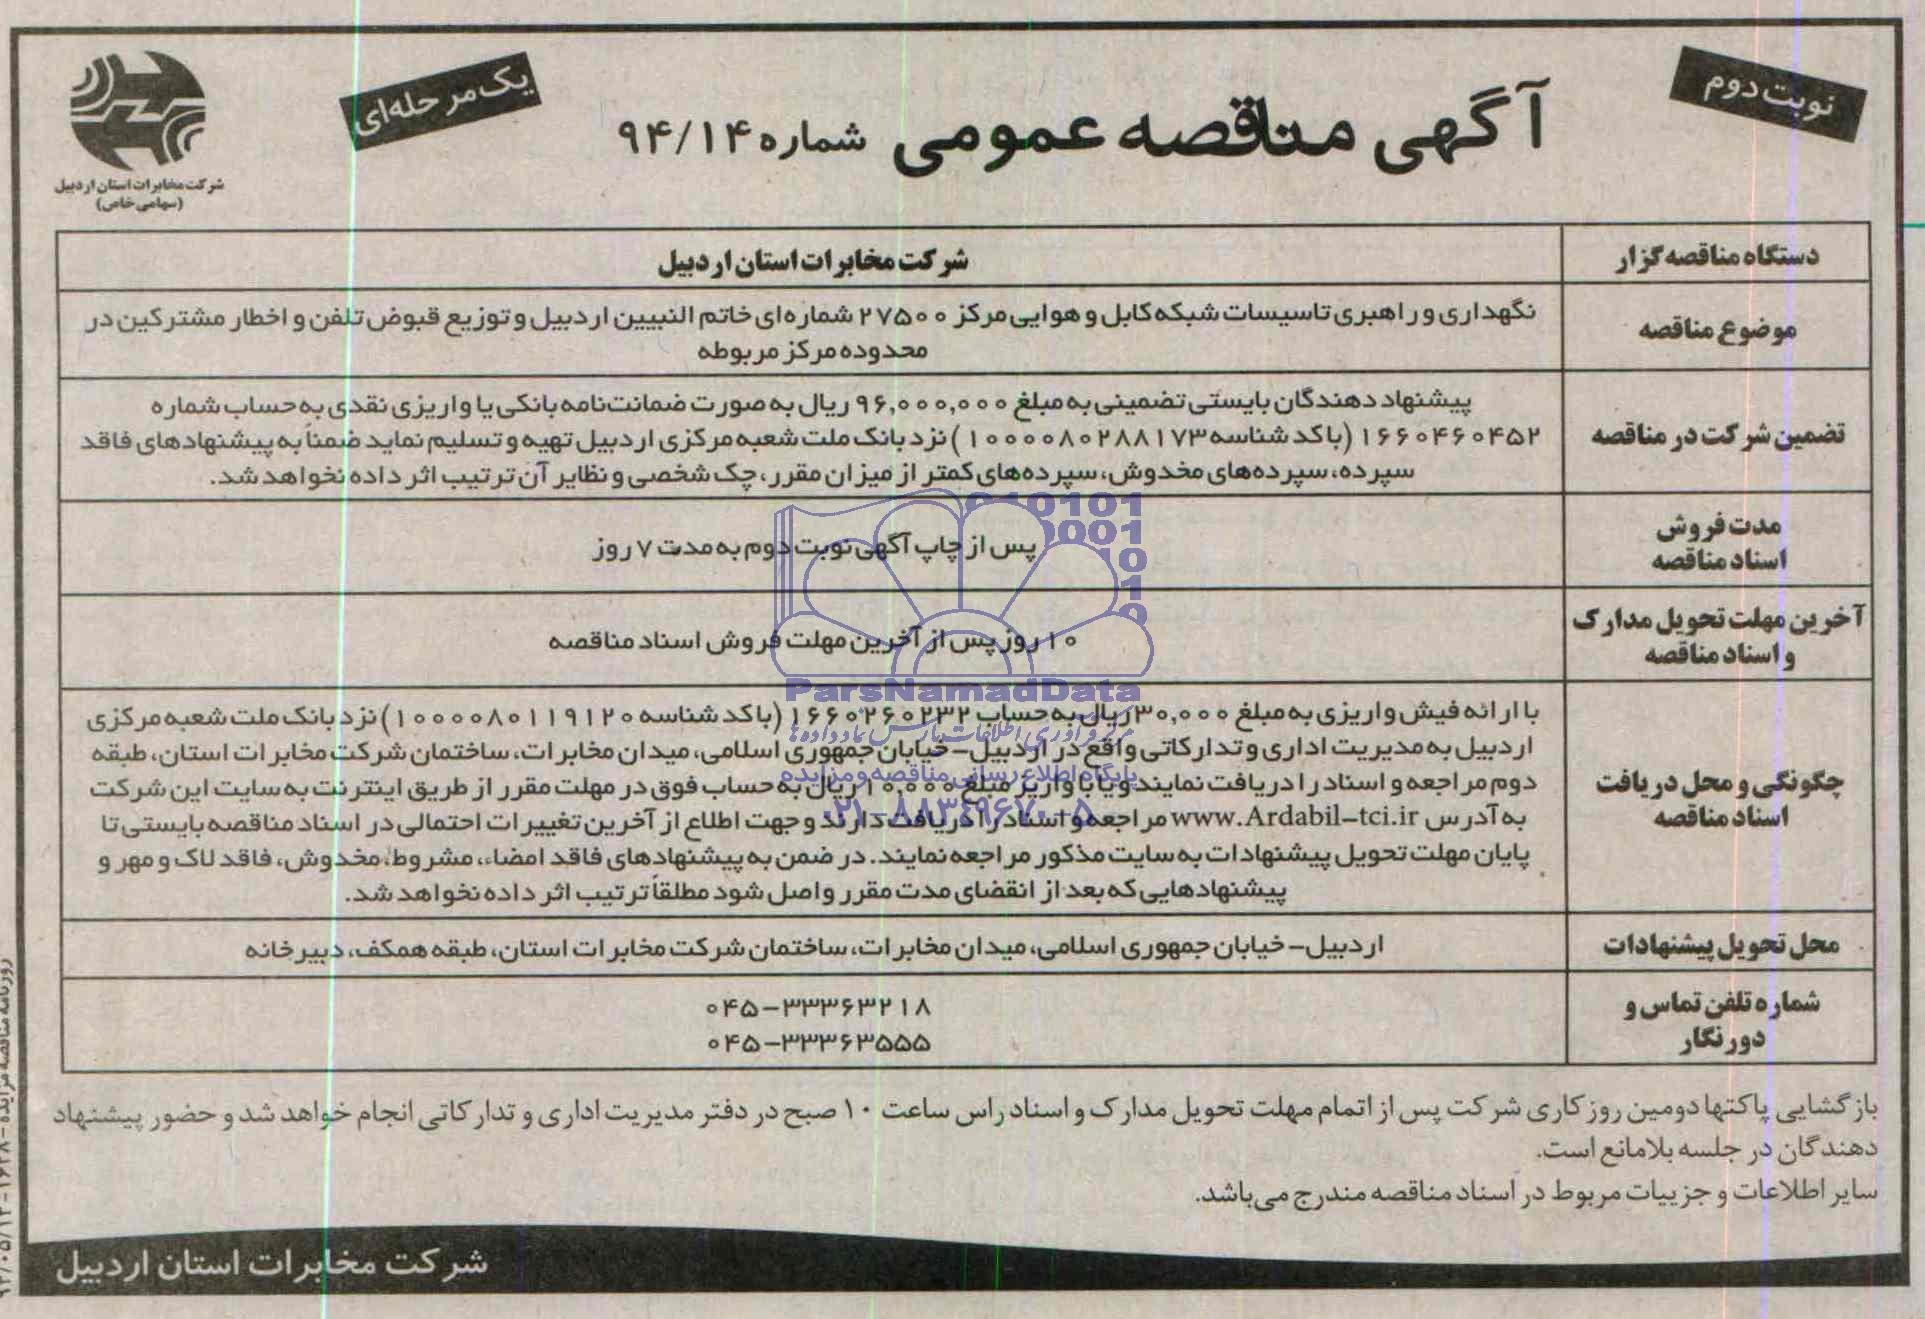 نوبت دوم
آگهی مناقصه عمومی شماره ۹۴/۱۴
یک مرحله‌ای
شرکت مخابرات استان اردبیل
(سهامی خاص)
دستگاه مناقصه گزار
شرکت مخابرات استان اردبیل
موضوع مناقصه
نگهداری و راهبری تاسیسات شبکه کابل و هوایی مرکز ۲۷۵۰۰ شماره‌ای خاتم النبیین اردبیل و توزیع قبوض تلفن و اخطار مشترکین در
محدوده مرکز مربوطه
تضمین شرکت در مناقصه
پیشنهاد دهندگان بایستی تضمینی به مبلغ ۹۶,۰۰۰,۰۰۰ ریال به صورت ضمانت‌نامه بانکی یا واریزی نقدی به حساب شماره
۱۶۶۰۴۶۰۴۵۲ (با کد شناسه ۱۰۰۰۰۸۰۲۸۸۱۷۳) نزد بانک ملت شعبه مرکزی اردبیل تهیه و تسلیم نماید ضمناً به پیشنهادهای فاقد
سپرده، سپرده‌های مخدوش، سپرده‌های کمتر از میزان مقرر، چک شخصی و نظایر آن ترتیب اثر داده نخواهد شد.
مدت فروش
اسناد مناقصه
پس از چاپ آگهی نوبت دوم به مدت ۷ روز
آخرین مهلت تحویل مدارک
و اسناد مناقصه
۱۰ روز پس از آخرین مهلت فروش اسناد مناقصه
چگونگی و محل دریافت
اسناد مناقصه
با ارائه فیش واریزی به مبلغ ۳۰,۰۰۰ ریال به حساب ۱۶۶۰۲۶۰۲۳۲ (با کد شناسه ۱۰۰۰۰۸۰۱۱۹۱۲۰) نزد بانک ملت شعبه مرکزی
اردبیل به مدیریت اداری و تدارکاتی واقع در اردبیل- خیابان جمهوری اسلامی، میدان مخابرات، ساختمان شرکت مخابرات استان، طبقه
دوم مراجعه و اسناد را دریافت نمایند و یا با واریز مبلغ ۱۰,۰۰۰ ریال به حساب فوق در مهلت مقرر از طریق اینترنت به سایت این شرکت
به آدرس www.Ardabil-tci.ir مراجعه و اسناد را دریافت دارند و جهت اطلاع از آخرین تغییرات احتمالی در اسناد مناقصه بایستی تا
پایان مهلت تحویل پیشنهادات به سایت مذکور مراجعه نمایند. در ضمن به پیشنهادهای فاقد امضاء، مشروط، مخدوش، فاقد لاک و مهر و
پیشنهادهایی که بعد از انقضای مدت مقرر واصل شود مطلقاً ترتیب اثر داده نخواهد شد.
محل تحویل پیشنهادات
اردبیل- خیابان جمهوری اسلامی، میدان مخابرات، ساختمان شرکت مخابرات استان، طبقه همکف، دبیرخانه
شماره تلفن تماس و
دورنگار
۰۴۵-۳۳۳۶۳۲۱۸
۰۴۵-۳۳۳۶۳۵۵۵
بازگشایی پاکتها دومین روز کاری شرکت پس از اتمام مهلت تحویل مدارک و اسناد راس ساعت ۱۰ صبح در دفتر مدیریت اداری و تدارکاتی انجام خواهد شد و حضور پیشنهاد
دهندگان در جلسه بلامانع است.
سایر اطلاعات و جزییات مربوط در اسناد مناقصه مندرج می‌باشد.
شرکت مخابرات استان اردبیل
روزنامه مناقصه مزایده - ۱۶۲۸ - ۹۴/۰۵/۱۴
ParsNamadData
مرکز فرآوری اطلاعات پارس نماد داده‌ها
پایگاه اطلاع رسانی مناقصه و مزایده